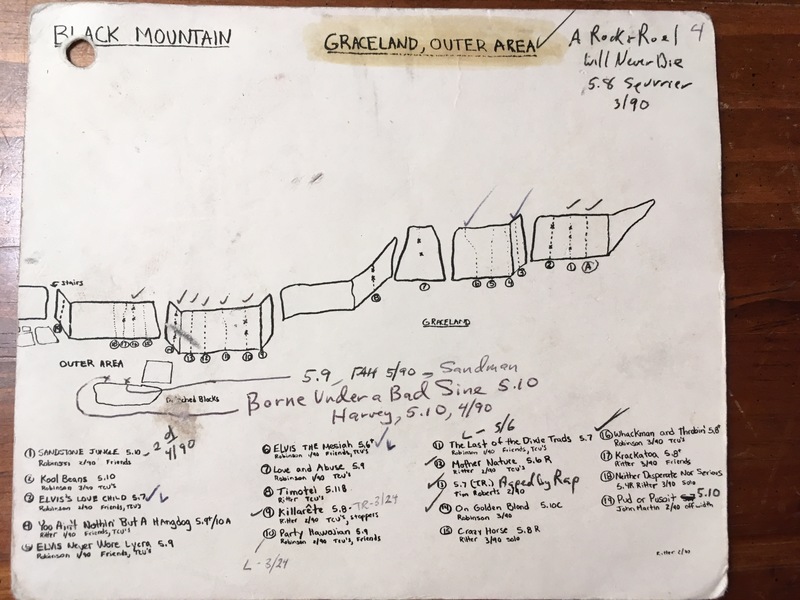 BLACK MOUNTAIN
GRACELAND, OUTER AREA
4
A Rock & Roel
Will Never Die
5.8 Squrrier
3/90
stairs
GRACELAND
OUTER AREA
Blocks
5.9, PAH 5/90 - Sandman
Borne Under a Bad Sine 5.10
Harvey, 5.10, 4/90
① SANDSTONE JUNGLE 5.10 - 2nd 4/90
Robinson 2/90 Friends
② Kool Beans 5.10
Robinson 3/90 TCU's
③ ELVIS'S LOVE CHILD 5.7
Robinson 1/90 Friends, TCU's
④ You Ain't Nothin' But A Hangdog 5.9+/10A
Ritter 1/90 Friends, TCU's
⑤ ELVIS Never Wore Lycra 5.9
Robinson 1/90 Friends, TCU's
⑥ ELVIS THE Mesiah 5.6+
Robinson 1/90 Friends, TCU's
⑦ Love and Abuse 5.9
Robinson 2/90 Friends, TCU's
⑧ Timotei 5.11B
Ritter TCU's
⑨ Killarête 5.8 - TR-3/24
Ritter 2/90 TCU's, stoppers
⑩ Party Hawaiian 5.9
Robinson 2/90 TCU's, Friends
L - 3/24
L - 5/6
⑪ The Last of the Dixie Trads 5.7
Robinson 1/90 Friends, TCU's
⑫ Mother Nature 5.6 R
Ritter 2/90 TCU's
⑬ 5.7 (T.R.) Agped by Rap
Tim Roberts 2/90
⑭ On Golden Blond 5.10C
Robinson 3/90
⑮ Crazy Horse 5.8 R
Ritter 3/90 Solo
⑯ Whackman and Throbin' 5.8+
Robinson 3/90 TCU's
⑰ Krackatoa 5.8+
Ritter 3/90 Friends
⑱ Neither Desperate Nor Serious
5.4R Ritter 3/90 Solo
⑲ Pud or Pusoit 5.10
John Martin 2/90 off width
Ritter 2/90